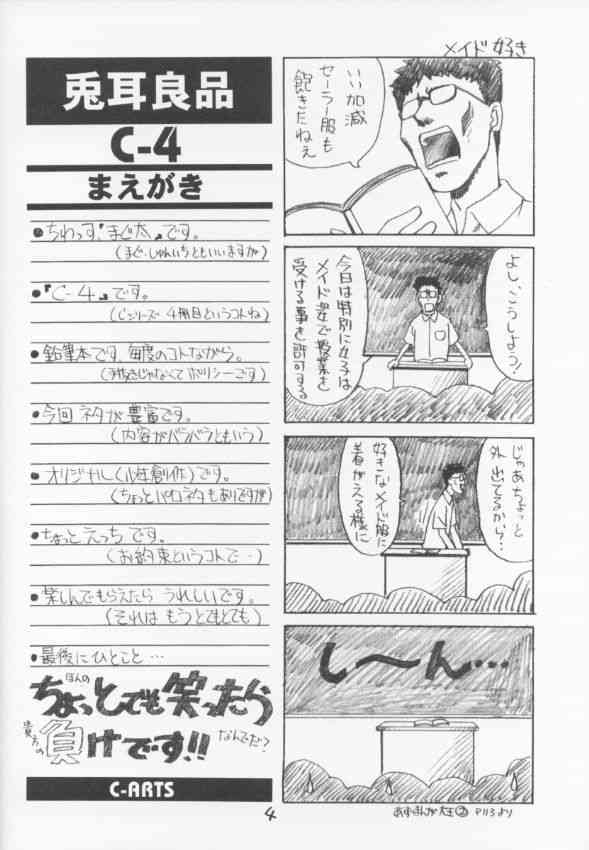 兎耳良品
C-4
まえがき
●ちわっす、『まぐ太』です。
(まぐ・じゃんいちともいいますが)
●『C-4』です。
(Cシリーズ 4冊目というコトね)
●鉛筆本です、毎度のコトながら。
(手抜きじゃなくてポリシーです)
●今回ネタが豊富です。
(内容がバラバラともいう)
●オリジナル(創作)です。
(ちょっとパロネタもありですが)
●ちょっとえっちです。
(お約束というコトで…)
●楽しんでもらえたら うれしいです。
(それは もうとてもとても)
●最後にひとこと…
ほんの
ちょっとでも笑ったら
貴方の負けです!!
なんでだ?
C-ARTS
メイド好き
いい加減
セーラー服も
飽きたねえ
よし、こうしよう!
今日は特別に女子は
メイド姿で授業を
受ける事を許可する。
じゃあちょっと
外出てるから…
好きなメイド服に
着がえる様に
し〜ん…
あずまんが大王② P113より
4